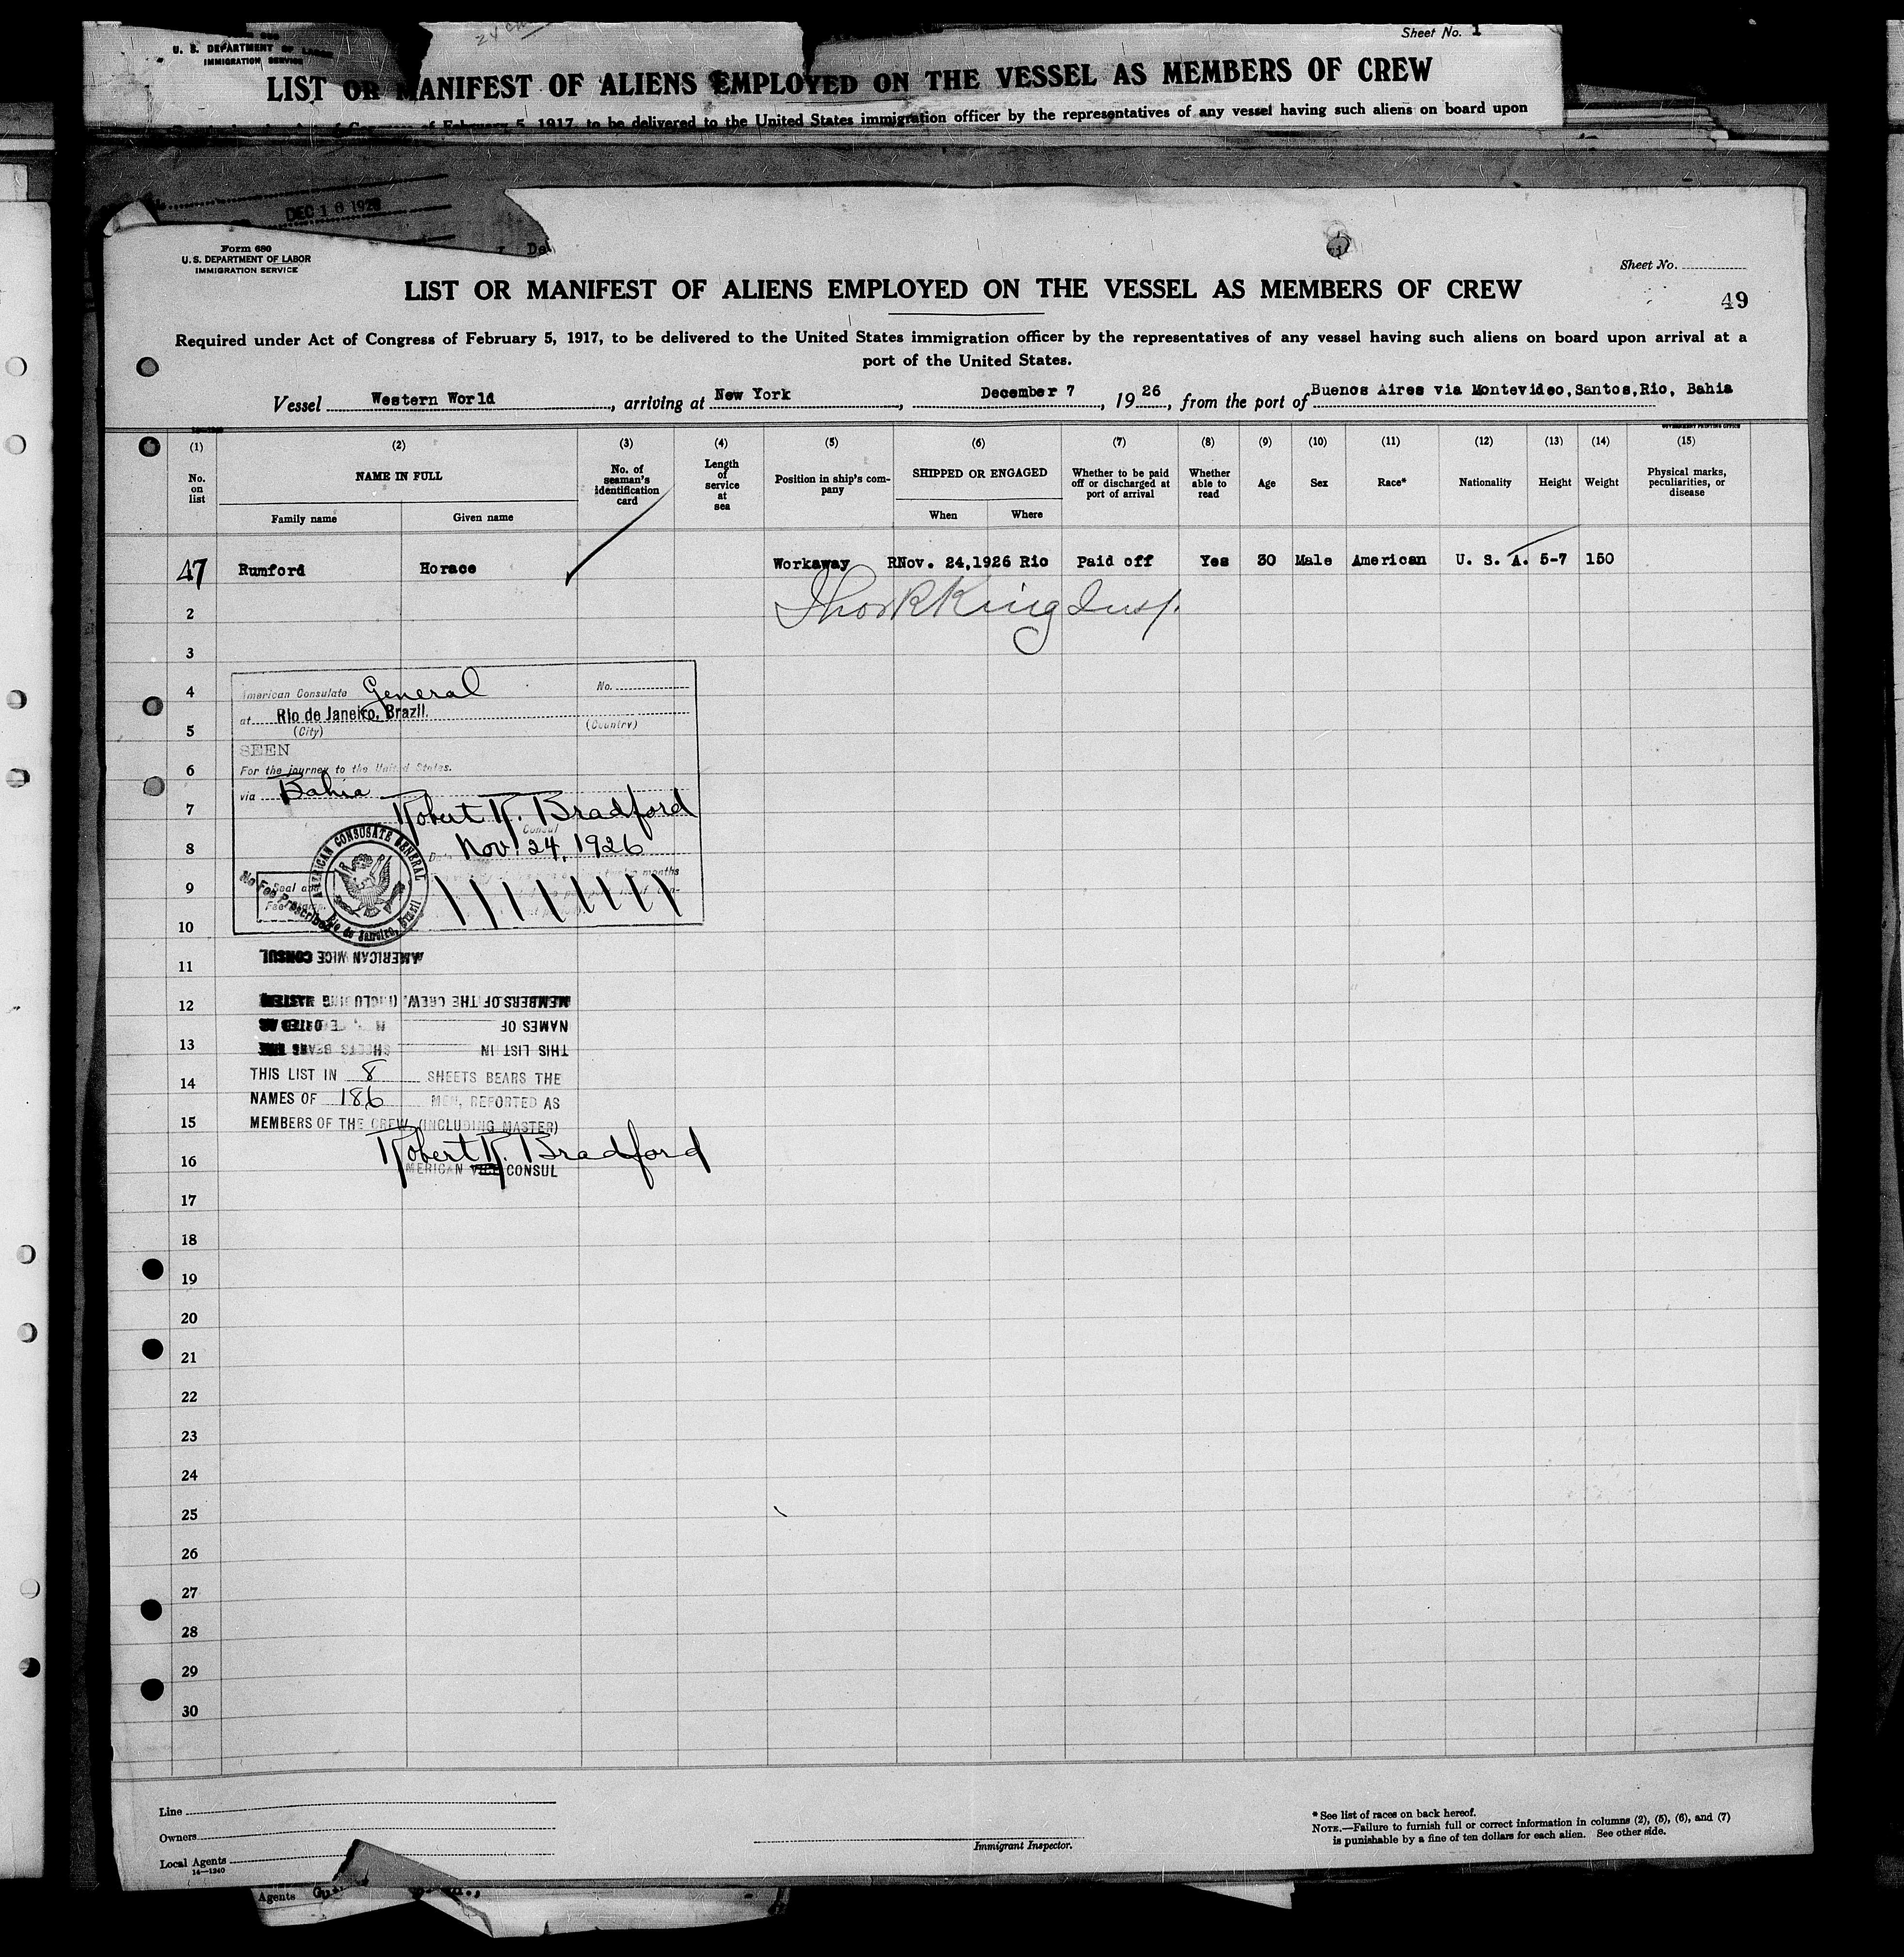 U. S. DEPARTMENT OF LABOR
IMMIGRATION SERVICE
Sheet No. 1
LIST OR MANIFEST OF ALIENS EMPLOYED ON THE VESSEL AS MEMBERS OF CREW
of February 5, 1917, to be delivered to the United States immigration officer by the representatives of any vessel having such aliens on board upon
DEC 16 1926
Form 680
U. S. DEPARTMENT OF LABOR
IMMIGRATION SERVICE
Sheet No.
LIST OR MANIFEST OF ALIENS EMPLOYED ON THE VESSEL AS MEMBERS OF CREW
49
Required under Act of Congress of February 5, 1917, to be delivered to the United States immigration officer by the representatives of any vessel having such aliens on board upon arrival at a
port of the United States.
Vessel Western World, arriving at New York, December 7, 1926, from the port of Buenos Aires via Montevideo, Santos, Rio, Bahia
GOVERNMENT PRINTING OFFICE
(1) (2) (3) (4) (5) (6) (7) (8) (9) (10) (11) (12) (13) (14) (15)
No. on list
NAME IN FULL
Family name
Given name
No. of seaman's identification card
Length of service at sea
Position in ship's company
SHIPPED OR ENGAGED
When
Where
Whether to be paid off or discharged at port of arrival
Whether able to read
Age
Sex
Race*
Nationality
Height
Weight
Physical marks, peculiarities, or disease
47 Rumford Horace Workaway RNov. 24,1926 Rio Paid off Yes 30 Male American U. S. A. 5-7 150
2 King Insp.
3
4 American Consulate General No.
at Rio de Janeiro, Brazil.
5 (City) (Country)
SEEN
6 For the journey to the United States.
via Bahia
7 Robert R. Bradford
Consul
8 Nov. 24, 1926
AMERICAN CONSULATE GENERAL
Rio de Janeiro, Brazil
No Fee Prescribed
9 Seal and
10
AMERICAN VICE CONSUL
11
MEMBERS OF THE CREW, (INCLUDING MASTER)
12
NAMES OF MEN, REPORTED AS
13
THIS LIST IN SHEETS BEARS THE
THIS LIST IN 8 SHEETS BEARS THE
14
NAMES OF 186 MEN, REPORTED AS
15 MEMBERS OF THE CREW, (INCLUDING MASTER)
Robert R. Bradford
16 AMERICAN VICE CONSUL
17
18
19
20
21
22
23
24
25
26
27
28
29
30
Line
Owners
Local Agents
14—1240
Immigrant Inspector.
* See list of races on back hereof.
NOTE.—Failure to furnish full or correct information in columns (2), (5), (6), and (7)
is punishable by a fine of ten dollars for each alien. See other side.
Agents